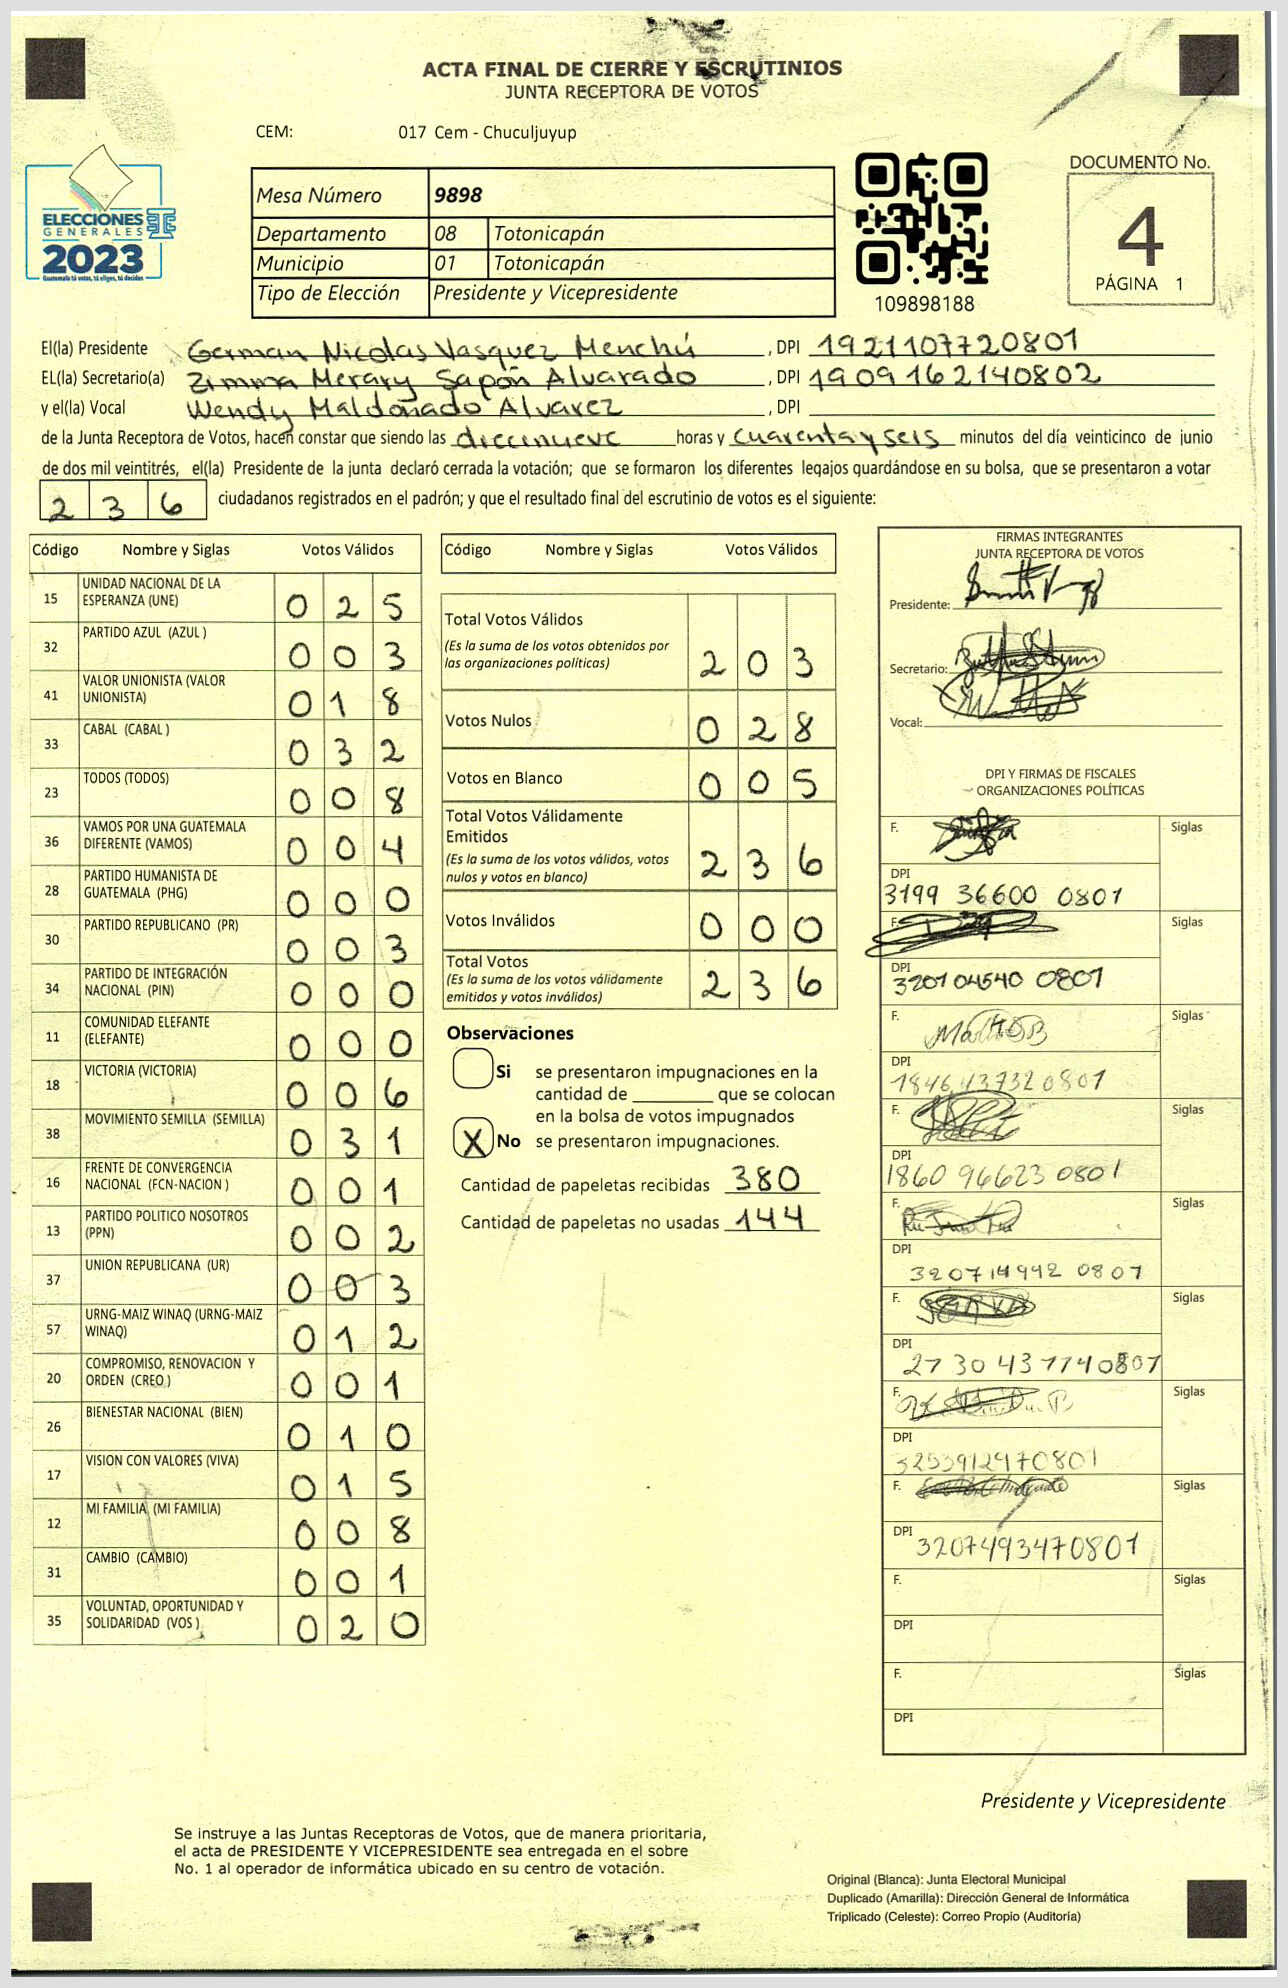 ACTA FINAL DE CIERRE Y ESCRUTINIOS
JUNTA RECEPTORA DE VOTOS
CEM: 017 Cem - Chuculjuyup
ELECCIONES
GENERALES
2023
Guatemala tú votas, tú eliges, tú decides
Mesa Número 9898
Departamento 08 Totonicapán
Municipio 01 Totonicapán
Tipo de Elección Presidente y Vicepresidente
109898188
DOCUMENTO No.
4
PÁGINA 1
El(la) Presidente German Nicolas Vasquez Menchú , DPI 1921107720801
EL(la) Secretario(a) Zimma Merary Sapón Alvarado , DPI 1909162140802
y el(la) Vocal Wendy Maldonado Alvarez , DPI
de la Junta Receptora de Votos, hacen constar que siendo las diecinueve horas y cuarenta y seis minutos del día veinticinco de junio
de dos mil veintitrés, el(la) Presidente de la junta declaró cerrada la votación; que se formaron los diferentes legajos guardándose en su bolsa, que se presentaron a votar
236 ciudadanos registrados en el padrón; y que el resultado final del escrutinio de votos es el siguiente:
Código Nombre y Siglas Votos Válidos
15 UNIDAD NACIONAL DE LA
ESPERANZA (UNE) 025
32 PARTIDO AZUL (AZUL ) 003
41 VALOR UNIONISTA (VALOR
UNIONISTA) 018
33 CABAL (CABAL ) 032
23 TODOS (TODOS) 008
36 VAMOS POR UNA GUATEMALA
DIFERENTE (VAMOS) 004
28 PARTIDO HUMANISTA DE
GUATEMALA (PHG) 000
30 PARTIDO REPUBLICANO (PR) 003
34 PARTIDO DE INTEGRACIÓN
NACIONAL (PIN) 000
11 COMUNIDAD ELEFANTE
(ELEFANTE) 000
18 VICTORIA (VICTORIA) 006
38 MOVIMIENTO SEMILLA (SEMILLA) 031
16 FRENTE DE CONVERGENCIA
NACIONAL (FCN-NACION ) 001
13 PARTIDO POLITICO NOSOTROS
(PPN) 002
37 UNION REPUBLICANA (UR) 003
57 URNG-MAIZ WINAQ (URNG-MAIZ
WINAQ) 012
20 COMPROMISO, RENOVACION Y
ORDEN (CREO ) 001
26 BIENESTAR NACIONAL (BIEN) 010
17 VISION CON VALORES (VIVA) 015
12 MI FAMILIA (MI FAMILIA) 008
31 CAMBIO (CAMBIO) 001
35 VOLUNTAD, OPORTUNIDAD Y
SOLIDARIDAD (VOS ) 020
Código Nombre y Siglas Votos Válidos
Total Votos Válidos
(Es la suma de los votos obtenidos por
las organizaciones políticas) 203
Votos Nulos 028
Votos en Blanco 005
Total Votos Válidamente
Emitidos
(Es la suma de los votos válidos, votos
nulos y votos en blanco) 236
Votos Inválidos 000
Total Votos
(Es la suma de los votos válidamente
emitidos y votos inválidos) 236
Observaciones
Si se presentaron impugnaciones en la
cantidad de ________ que se colocan
en la bolsa de votos impugnados
X No se presentaron impugnaciones.
Cantidad de papeletas recibidas 380
Cantidad de papeletas no usadas 144
FIRMAS INTEGRANTES
JUNTA RECEPTORA DE VOTOS
Presidente:
Secretario:
Vocal:
DPI Y FIRMAS DE FISCALES
ORGANIZACIONES POLÍTICAS
F. Siglas
DPI
3199 36600 0801
F. Siglas
DPI
3201 04540 0801
F. Siglas
DPI
1846 43732 0801
F. Siglas
DPI
1860 96623 0801
F. Siglas
DPI
3207 14992 0801
F. Siglas
DPI
2730 43774 0801
F. Siglas
DPI
3253912970801
F. Siglas
DPI
3207493470801
F. Siglas
DPI
F. Siglas
DPI
Presidente y Vicepresidente
Se instruye a las Juntas Receptoras de Votos, que de manera prioritaria,
el acta de PRESIDENTE Y VICEPRESIDENTE sea entregada en el sobre
No. 1 al operador de informática ubicado en su centro de votación.
Original (Blanca): Junta Electoral Municipal
Duplicado (Amarilla): Dirección General de Informática
Triplicado (Celeste): Correo Propio (Auditoría)